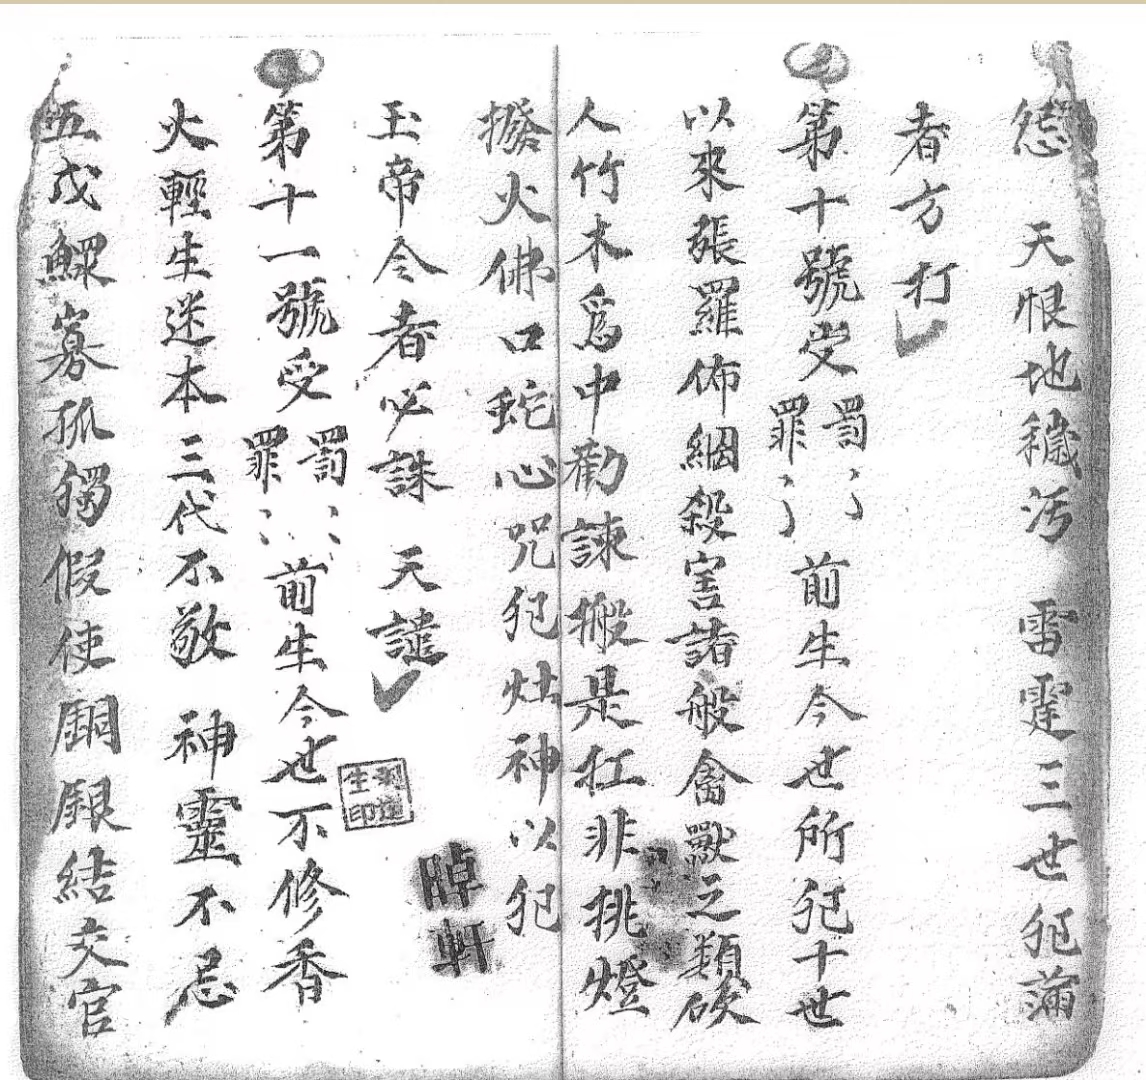 愆　天恨地穢污　雷霆三世犯滿
者方打
第十號受罰罪〻前生今世所犯十世
以來張羅佈網殺害諸般禽獸之類砍
人竹木爲中勸諫搬是扛非挑燈
撥火佛口蛇心咒犯灶神以犯
玉帝令者必誅　天譴
第十一號受罰罪〻前生今世不修香
火輕生迷本三代不敬　神靈不忌
五戊鰥寡孤獨假使銅銀結交官
生印
軒